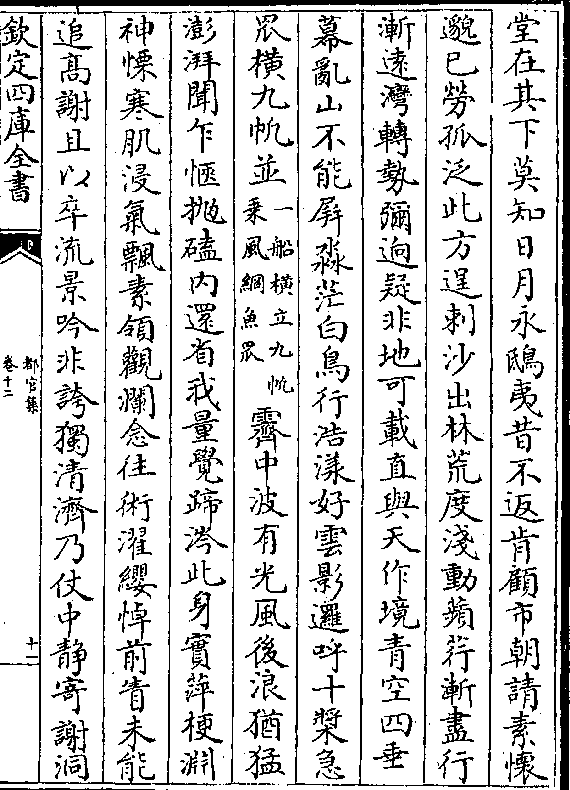 堂在其下莫知日月永鴟夷昔不返肯顧市朝請素懷
邈已勞孤泛此方逞刺沙出林荒度淺動蘋荇漸盡行
漸逺灣轉勢彌逈疑非地可載直與天作境青空四垂
幕亂山不能屏淼茫白鳥行浩漾好雲影邏呼十槳急
罛横九帆並一船横立九帆乗風網魚罛霽中波有光風後浪猶猛
澎湃聞乍愜抛磕内還省我量覺蹄涔此身實萍梗淵
神慄寒肌浸氣飄素領觀瀾念往術濯纓悼前眚未能
追髙謝且以卒流景吟非誇獨清濟乃仗中静寄謝洞
欽定四庫全書
都官集
卷十二
十一